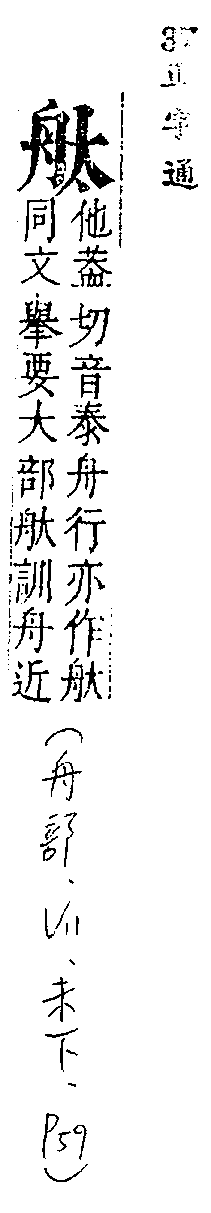 37正字通
舦
他蓋切音泰舟行亦作
同文舉要大部訓舟近
(舟部、VII、未下、P59)